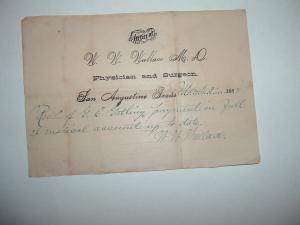 W. W. Wallace M. D.
Physician and Surgeon.
San Augustine Texas 18
Rec'd of G. E. payment in full
of medical to date
W W Wallace